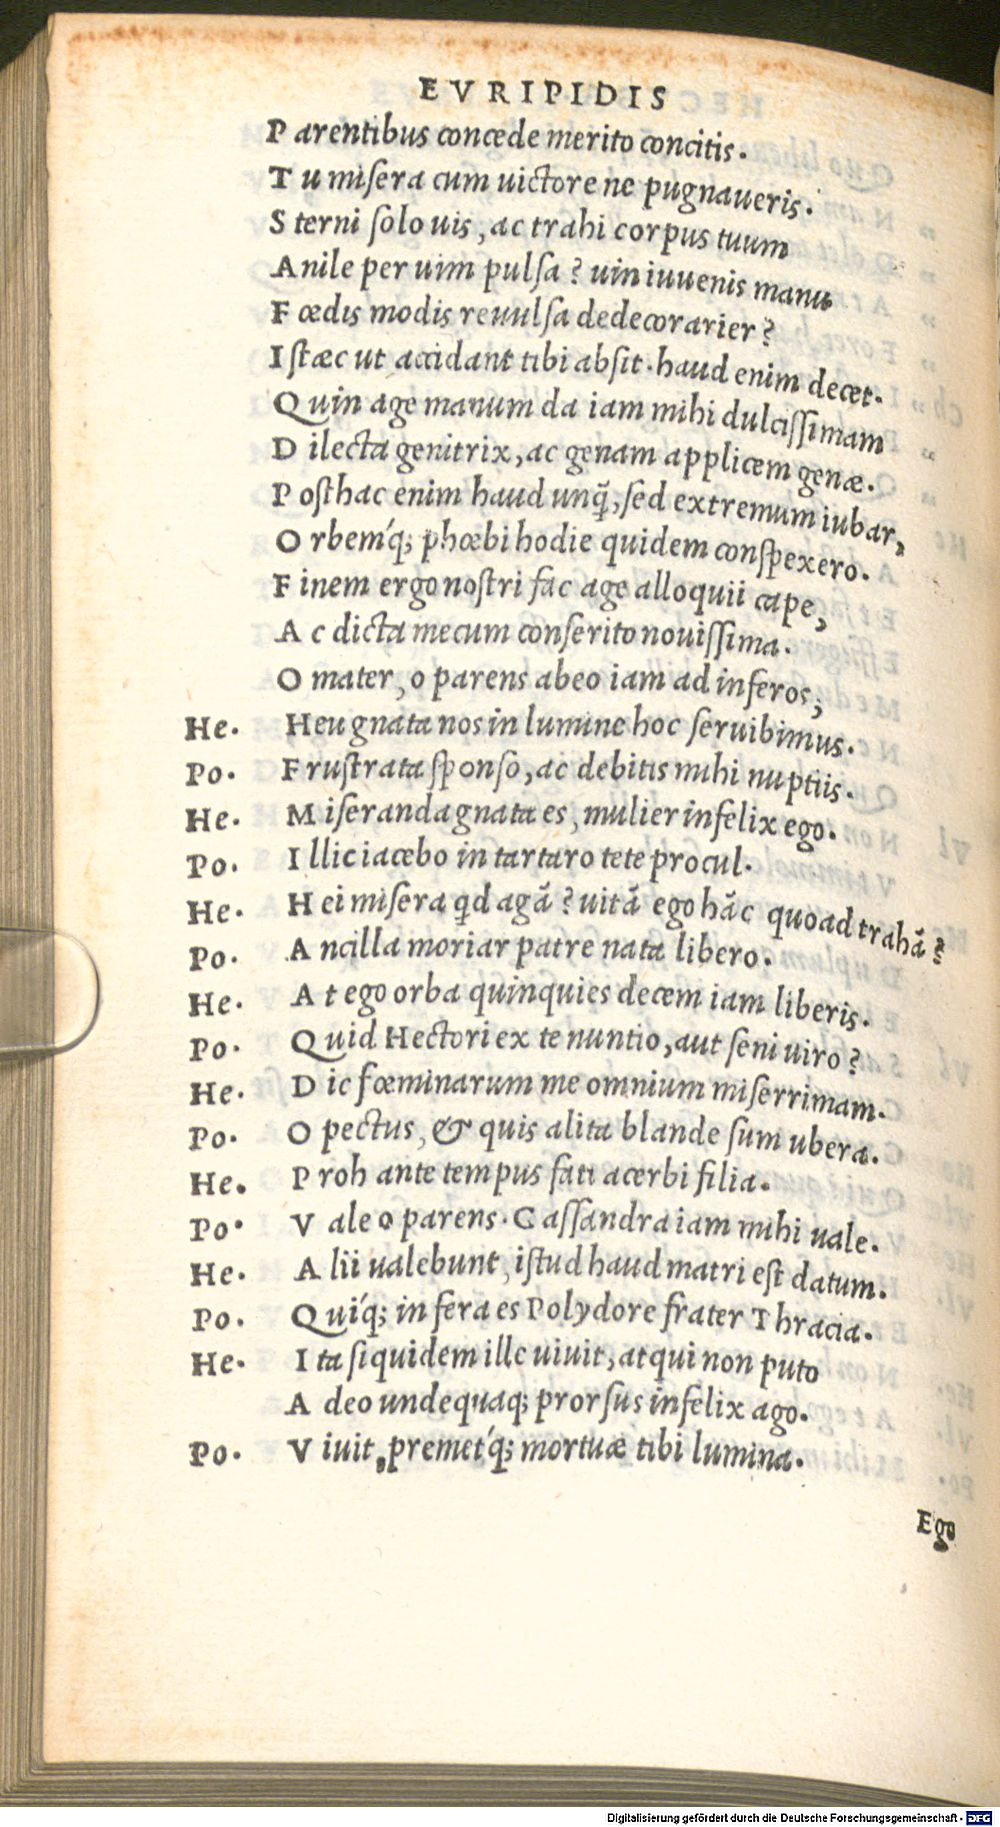 EVRIPIDIS
P arentibus concede merito concitis.
T u misera cum uictore ne pugnaueris.
S terni solo uis, ac trahi corpus tuum
A nile per uim pulsa? uin iuuenis manu
F œdis modis reuulsa dedecorarier?
I stæc ut accidant tibi absit. haud enim decet.
Q uin age manum da iam mihi dulcissimam
D ilecta genitrix, ac genam applicem genæ.
P osthac enim haud unq̃, sed extremum iubar,
O rbemq́; phœbi hodie quidem conspexero.
F inem ergo nostri fac age alloquii cape,
A c dicta mecum conserito nouissima.
O mater, o parens abeo iam ad inferos;
He. Heu gnata nos in lumine hoc seruibimus.
Po. F rustrata sponso, ac debitis mihi nuptiis.
He. M iseranda gnata es, mulier infelix ego.
Po. I llic iacebo in tartaro te te procul.
He. H ei misera qd agã? uitã ego hãc quoad trahã?
Po. A ncilla moriar patre nata libero.
He. A t ego orba quinquies decem iam liberis.
Po. Q uid Hectori ex te nuntio, aut seni uiro?
He. D ic fœminarum me omnium miserrimam.
Po. O pectus, & quis alita blande sum ubera.
He. P roh ante tempus fati acerbi filia.
Po. V ale o parens. Cassandra iam mihi uale.
He. A lii ualebunt, istud haud matri est datum.
Po. Q uiq́; in fera es Polydore frater Thracia.
He. I ta siquidem ille uiuit, atqui non puto
A deo undequaq; prorsus infelix ago.
Po. V iuit, premetq́; mortuæ tibi lumina.
Ego
Digitalisierung gefördert durch die Deutsche Forschungsgemeinschaft - DFG